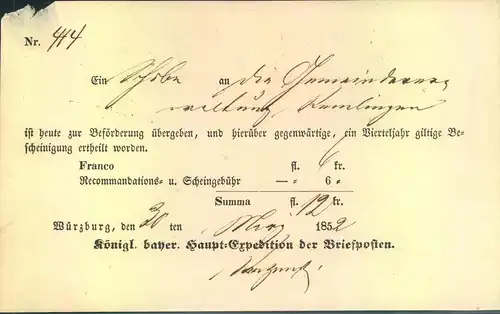 Nr. 414
Ein an die Gemeindever-
waltung Remlingen
ist heute zur Beförderung übergeben, und hierüber gegenwärtige, ein Vierteljahr giltige Be-
scheinigung ertheilt worden.
Franco fl. 6 kr.
Recommandations- u. Scheingebühr —„ 6 „
Summa fl. 12 kr.
Würzburg, den 30 ten 1852
Königl. bayer. Haupt-Expedition der Briefposten.